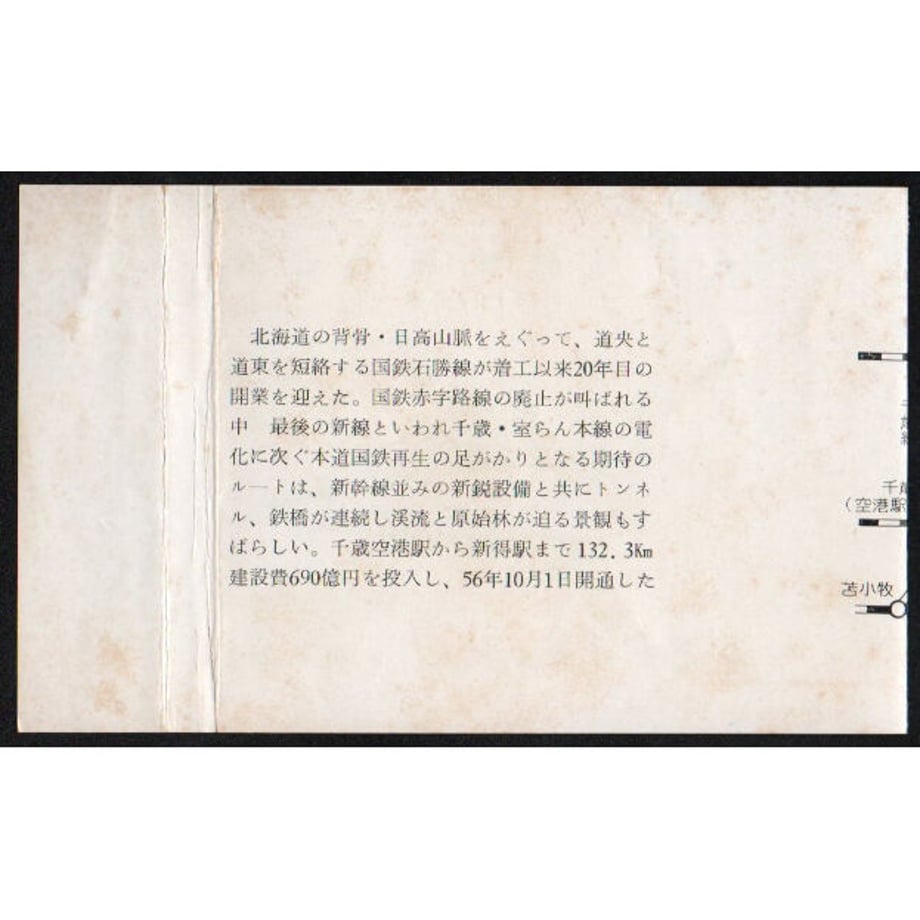 北海道の背骨・日高山脈をえぐって、道央と
道東を短絡する国鉄石勝線が着工以来20年目の
開業を迎えた。国鉄赤字路線の廃止が叫ばれる
中　最後の新線といわれ千歳・室らん本線の電
化に次ぐ本道国鉄再生の足がかりとなる期待の
ルートは、新幹線並みの新鋭設備と共にトンネ
ル、鉄橋が連続し渓流と原始林が迫る景観もす
ばらしい。千歳空港駅から新得駅まで132.3Km
建設費690億円を投入し、56年10月1日開通した
千歳
（空港駅
苫小牧